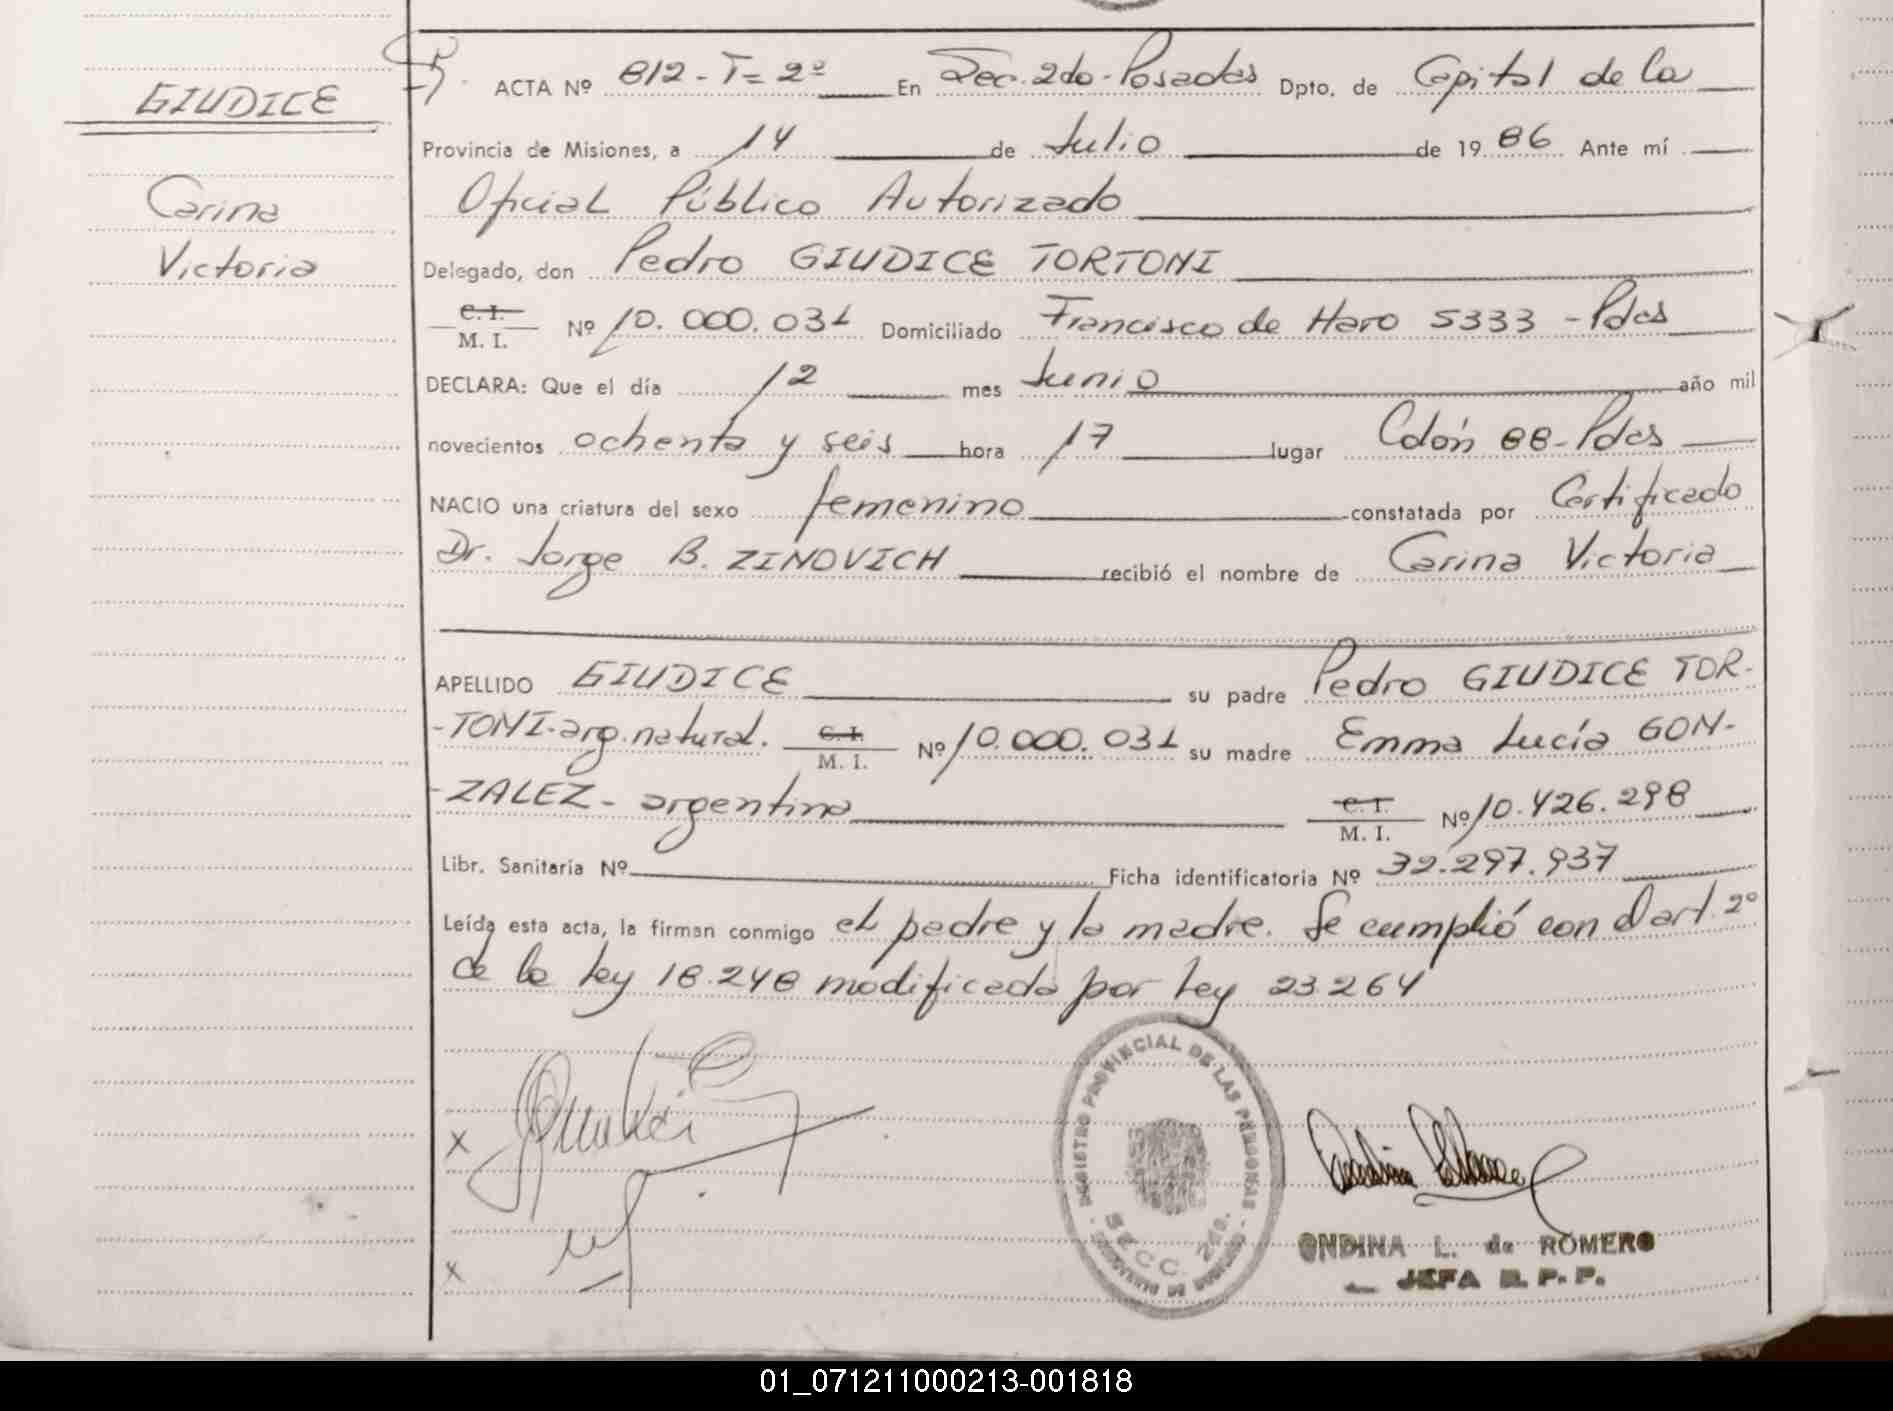 GIUDICE
Carina
Victoria
ACTA Nº 812 - T= 2º En Sec. 2do - Posadas Dpto. de Capital de la
Provincia de Misiones, a 14 de Julio de 1986 Ante mí
Oficial Público Autorizado
Delegado, don Pedro GIUDICE TORTONI
C. I.
M. I. Nº 10.000.031 Domiciliado Francisco de Haro 5333 - Pdas
DECLARA: Que el día 12 mes Junio año mil
novecientos ochenta y seis hora 17 lugar Colón 88 - Pdas
NACIO una criatura del sexo femenino constatada por Certificado
Dr. Jorge B. ZINOVICH recibió el nombre de Carina Victoria
APELLIDO GIUDICE su padre Pedro GIUDICE TOR-
-TONI - arg. natural. C. I. M. I. Nº 10.000.031 su madre Emma Lucía GON-
-ZALEZ - argentina C. I. M. I. Nº 10.426.298
Libr. Sanitaria Nº Ficha identificatoria Nº 32.297.937
Leída esta acta, la firman conmigo el padre y la madre. Se cumplió con el art. 2º
de la ley 18.248 modificada por ley 23264
REGISTRO PROVINCIAL DE LAS PERSONAS
SECC. 2da.
x
x
ONDINA L. de ROMERO
JEFA R. P. P.
01_071211000213-001818